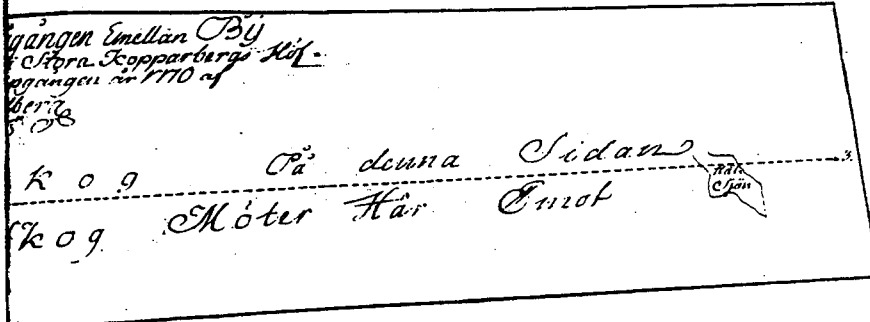 gången Emellan Bÿ
Stora Kopparbergs Höf-
pgången år 1770 af
berg
kog På denna Sidan
3.
Sjön
Skog Möter Här Emot